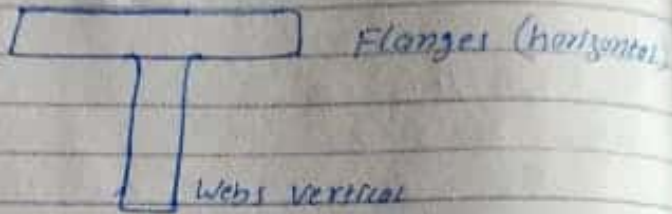 Flanges (horizontal)
Webs vertical